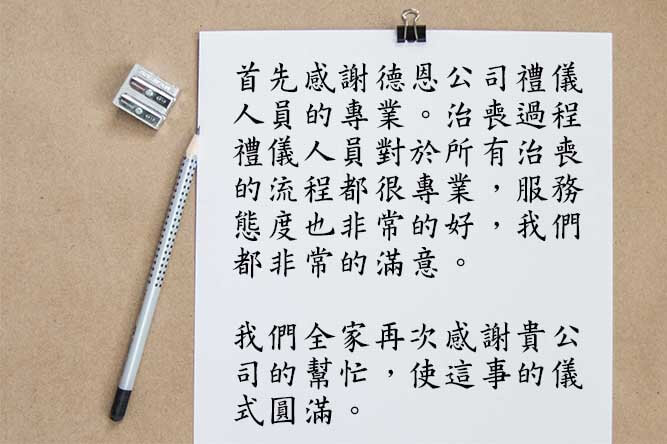 首先感謝德恩公司禮儀
人員的專業。治喪過程
禮儀人員對於所有治喪
的流程都很專業，服務
態度也非常的好，我們
都非常的滿意。
我們全家再次感謝貴公
司的幫忙，使這事的儀
式圓滿。